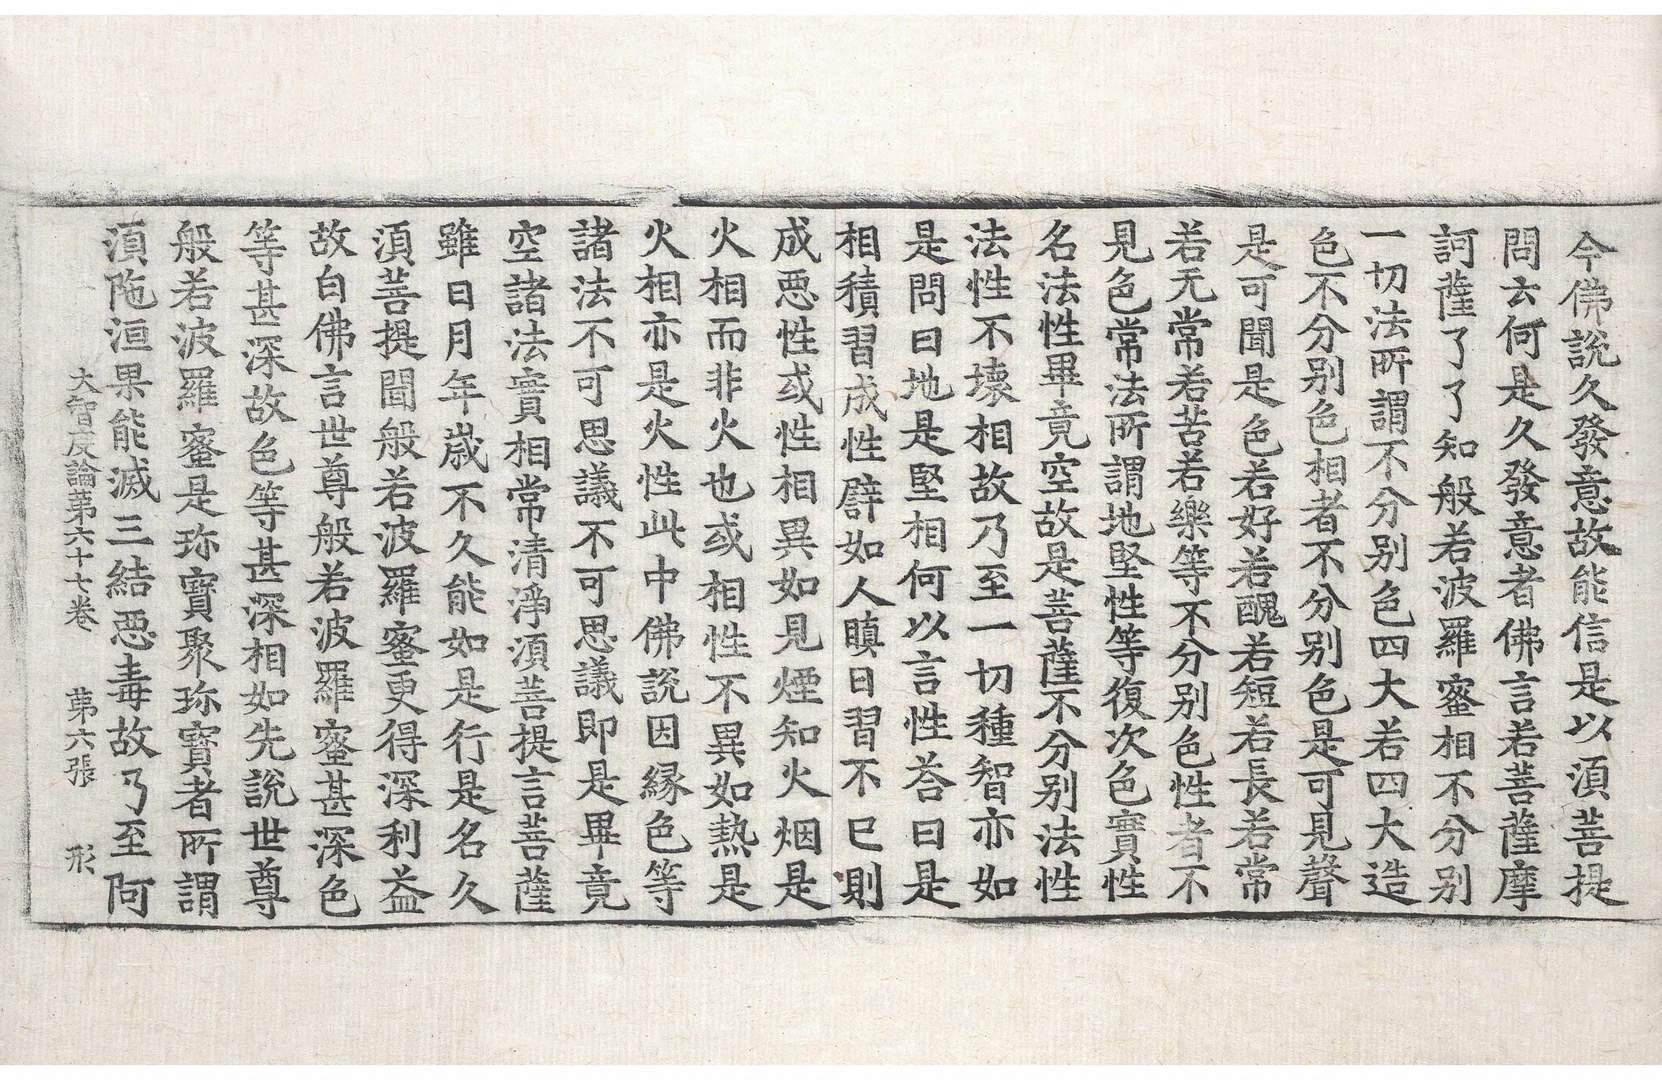 今佛說久發意故能信是以湏菩提
問云何是久發意者佛言若菩薩摩
訶薩了了知般若波羅蜜相不分別
一切法所謂不分別色四大若四大造
色不分別色相者不分別色是可見聲
是可聞是色若好若醜若短若長若常
若无常若苦若樂等不分別色性者不
見色常法所謂地堅性等復次色實性
名法性畢竟空故是菩薩不分別法性
法性不壞相故乃至一切種智亦如
是問曰地是堅相何以言性荅曰是
相積習成性譬如人瞋日習不已則
成惡性或性相異如見煙知火烟是
火相而非火也或相性不異如熱是
火相亦是火性此中佛說因緣色等
諸法不可思議不可思議即是畢竟
空諸法實相常清淨湏菩提言菩薩
雖日月年歲不久能如是行是名久
湏菩提聞般若波羅蜜更得深利益
故白佛言世尊般若波羅蜜甚深色
等甚深故色等甚深相如先說世尊
般若波羅蜜是珎寶聚珎寶者所謂
湏陁洹果能滅三結惡毒故乃至阿
大智度論第六十七卷 第六張 形